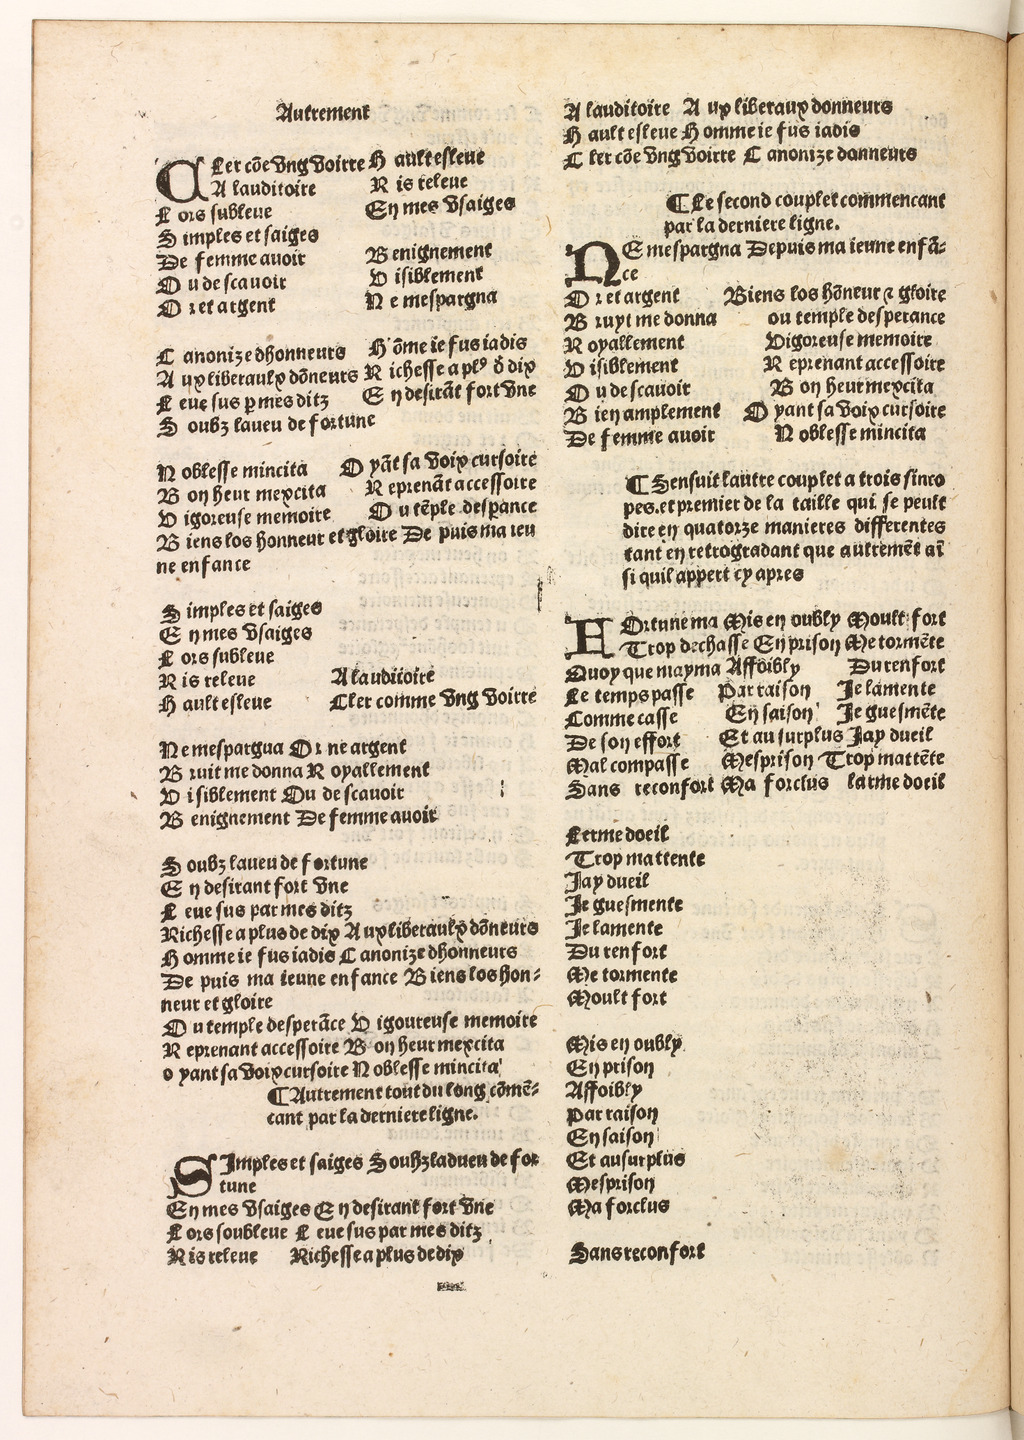 Autrement
CLer cõe vng voirre H ault esleue
A lauditoire R is releue
L ors subleue En mes vsaiges
S imples et saiges
De femme auoir B enignement
O u de scauoir V isiblement
O r et argent N e mespargna
C anonize dhonneurs H õme ie fus iadis
A ux liberaulx dõneurs R ichesse a plꝰ d̕ dix
L eue sus p mes ditz E n desirãt fort vne
S oubz laueu de fortune
N oblesse mincita O yãt sa voix cursoire
B on heur mexcita R eprenãt accessoire
V igoreuse memoire O u tẽple desperance
B iens los honneur et gloire De puis ma ieu
ne enfance
S imples et saiges
E n mes vsaiges
L ors subleue
R is releue A lauditoire
H ault esleue Cler comme vng voirre
Ne mespargua Or ne argent
B ruit me donna R oyallement
V isiblement Ou de scauoir
B enignement De femme auoir
S oubz laueu de fortune
E n desirant fort vne
L eue sus par mes ditz
Richesse a plus de dix A ux liberaulx dõneurs
H omme ie fus iadis C anonize dhonneurs
De puis ma ieune enfance B iens los hon-
neur et gloire
O u temple desperãce V igoureuse memoire
R eprenant accessoire B on heur mexcita
o yant sa voix cursoire N oblesse mincita
¶Autrement tout du long cõmẽ-
cant par la derniere ligne.
SImples et saiges Soubz ladueu de for
tune
En mes vsaiges E n desirant fort vne
L ors soubleue L eue sus par mes ditz
R is releue Richesse a plus de dix
A lauditoire A ux liberaux donneurs
H ault esleue H omme ie fus iadis
C ler cõe vng voirre C anonize donneurs
¶Le second couplet commencant
par la derniere ligne.
NE mespargna Depuis ma ieune enfã-
ce
O r et argent Biens los hõneur ꝛ gloire
B ruyt me donna ou temple desperance
R oyallement Vigoreuse memoire
V isiblement R eprenant accessoire
O u de scauoir B on heur mexcita
B ien amplement O yant sa voix cursoire
De femme auoir N oblesse mincita
¶Sensuit lautre couplet a trois sinco
pes.et premier de la taille qui se peult
dire en quatorze manieres differentes
tant en retrogradant que aultremẽt aĩ
si quil appert cy apres
FOrtune ma Mis en oubly Moult fort
Trop dechasse En prison Me tormẽte
Quoy que mayma Affoibly Du renfort
Le temps passe Par raison Je lamente
Comme casse En saison Je guesmẽte
De son effort Et au surplus Jay dueil
Mal compasse Mesprison Trop mattẽte
Sans reconfort Ma forclus larme doeil
Lerme doeil
Trop mattente
Jay dueil
Je guesmente
Je lamente
Du renfort
Me tormente
Moult fort
Mis en oubly
En prison
Affoibly
Par raison
En saison
Et au surplus
Mesprison
Ma forclus
Sans reconfort